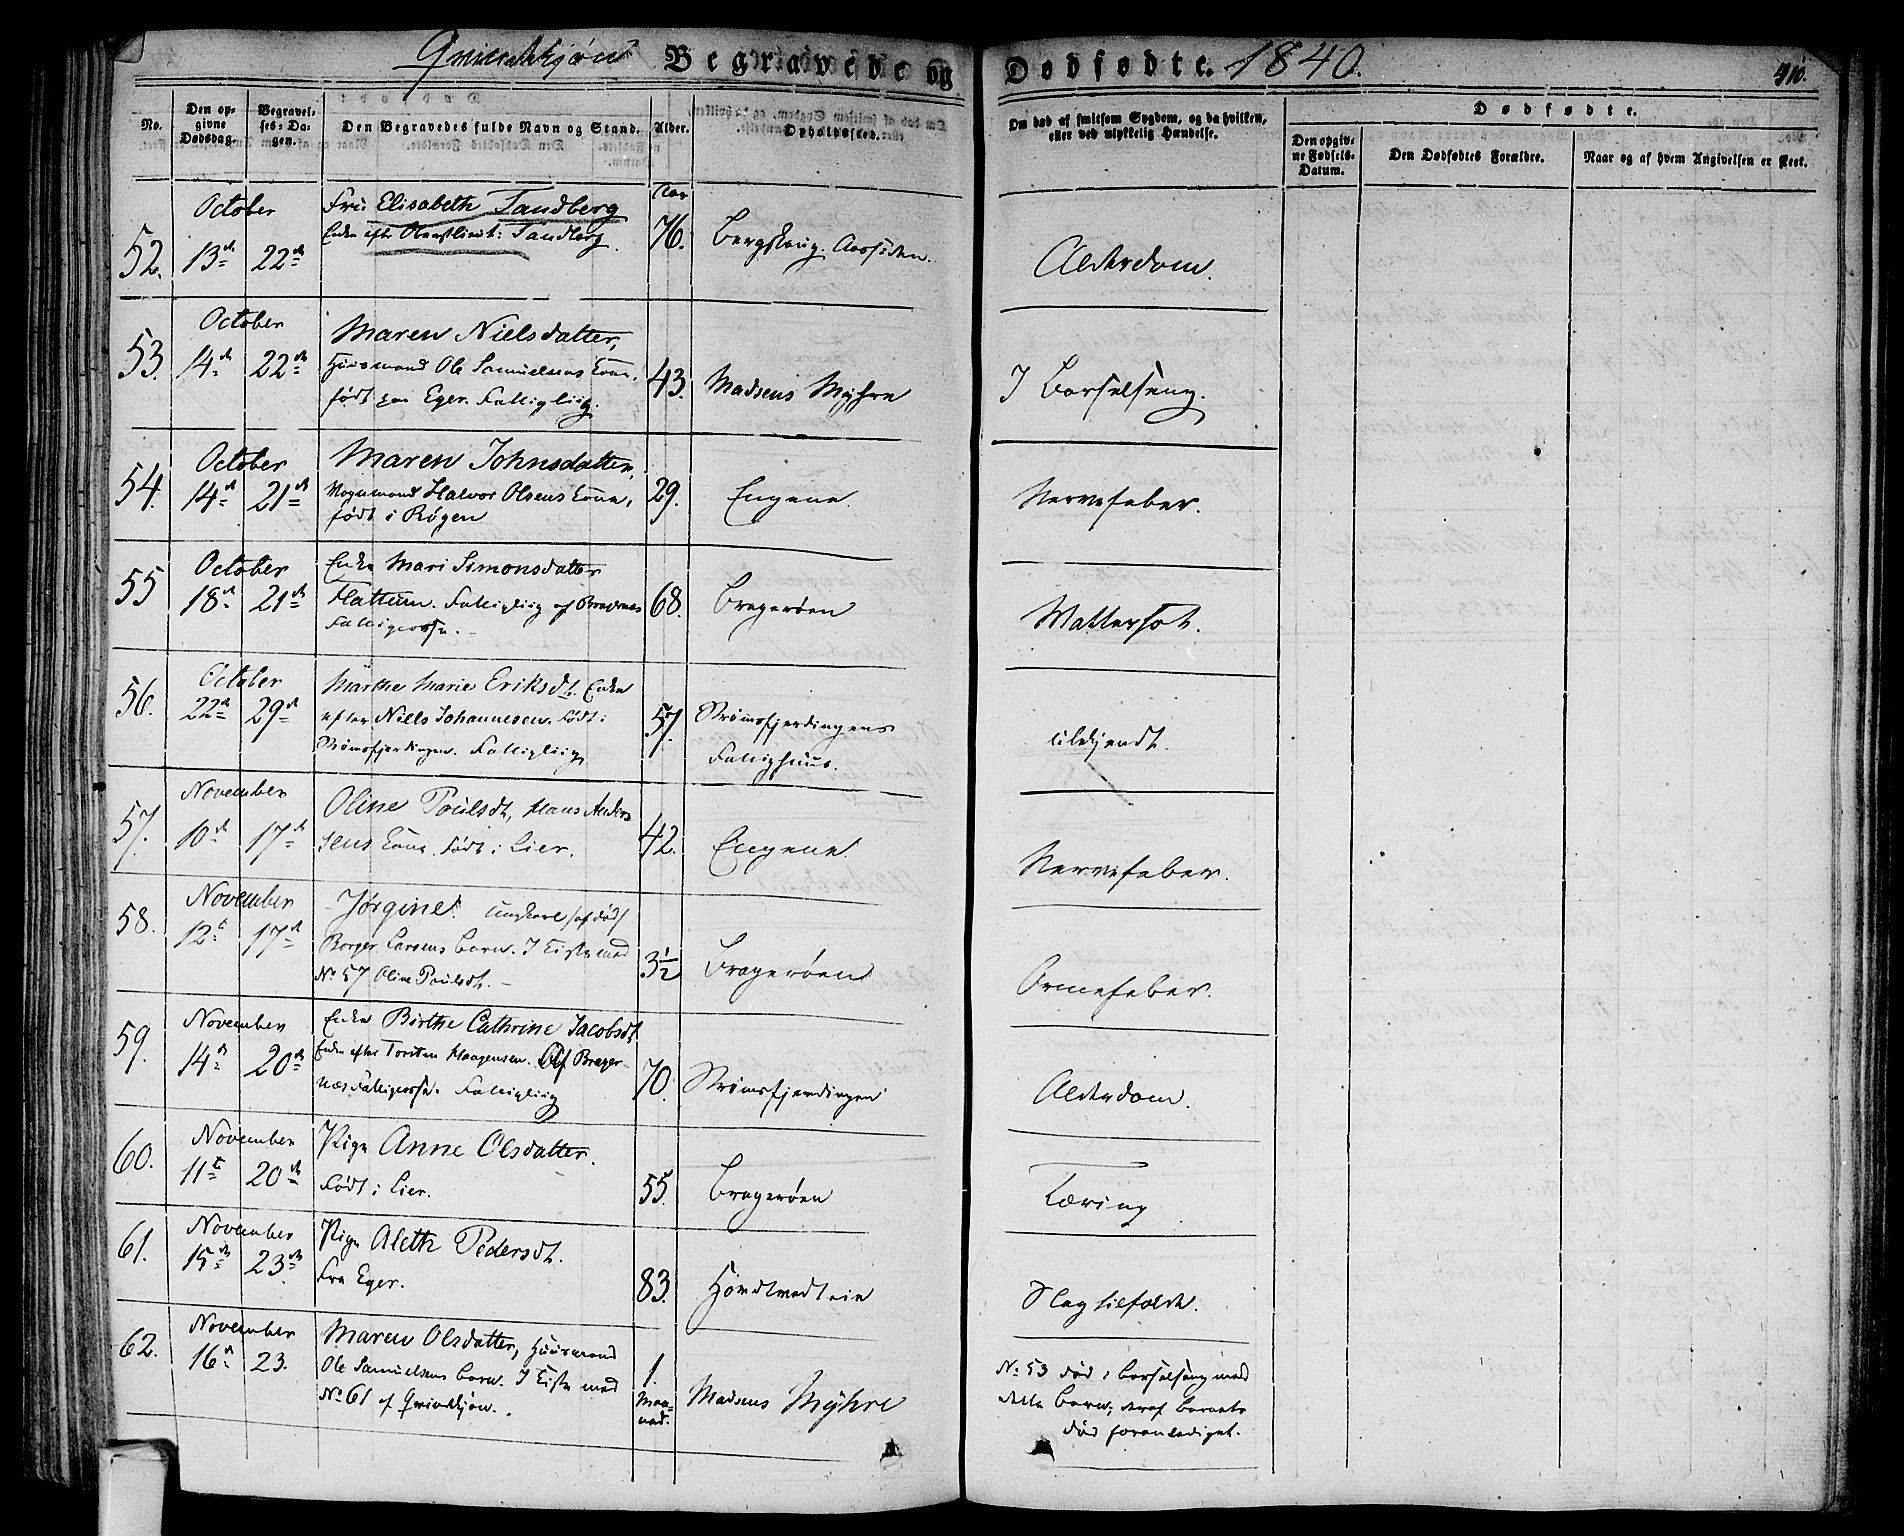 Qvindekjøn Begravede og Dødfødte. 1840. 410.
No.
Den opgivne Dødsdag.
Begravelses-Dagen.
Den Begravedes fulde Navn og Stand.
Alder.
Opholdssted.
Om død af smitsom Sygdom, og da hvilken, eller ved ulykkelig Hændelse.
Dødfødte.
Den opgivne Fødsels-Datum.
Den Dødfødtes Forældre.
Naar og af hvem Angivelsen er skeet.
October Fru Elisabeth Tandberg Aar
52. 13de 22de Enke efter Oberstlieut: Tandberg. 76. Bergskoug. Aassiden. Alderdom.
October Maren Nielsdatter,
53. 14de 22de Huusmand Ole Samuelsens Kone, 43. Madsens Myhre I Barselseng.
født paa Eger. Fattiglig.
October Maren Johnsdatter,
54. 14de 21de Vognmand Halvor Olsens Kone, 29. Engene. Nervefeber.
født i Røgen
October Enke Mari Simonsdatter
55 18de 21de Hattum. Fattiglig af Bragernes 68. Bragerøen Wattersot.
Fattigcasse.
October Marthe Marie Eriksdt. Enke
56. 22de 29de efter Niels Johannesen. Født i 57. Strømsfjerdingens ubekjendt.
Strømsfjerdingen. Fattiglig Fattighuus.
November Oline Poulsdt, Hans Ander
57. 10de 17de sens Kone. Født i Lier. 42. Engene. Nervefeber.
November Jørgine. Ungkarl /afdød/
58. 12te 17de Borger Larsens Barn. I Kiste med 3½ Bragerøen Ormefeber.
No 57 Oline Poulsdt. –
November Enke Birthe Cathrine Jacobsdt
59. 14de 20de Enke efter Torsten Haagensen. Af Brager- 70. Strømsfjerdingen Alderdom.
næs Fattigcasse. Fattiglig
November Pige Anne Olsdatter.
60. 11te 20de Født i Lier. 55. Bragerøen Tæring
November Pige Aleth Pedersdt.
61. 15de 23de Fra Eger. 83. Slagtilfælde.
November Maren Olsdatter, Huusmand
62. 16de 23. Ole Samuelsens Barn. I Kiste med 1. Maaned. Madsens Myhre No 53 død i Barselseng med
No 61 af Qvindekjøn. dette Barn; deraf Barnets
død foranlediget.